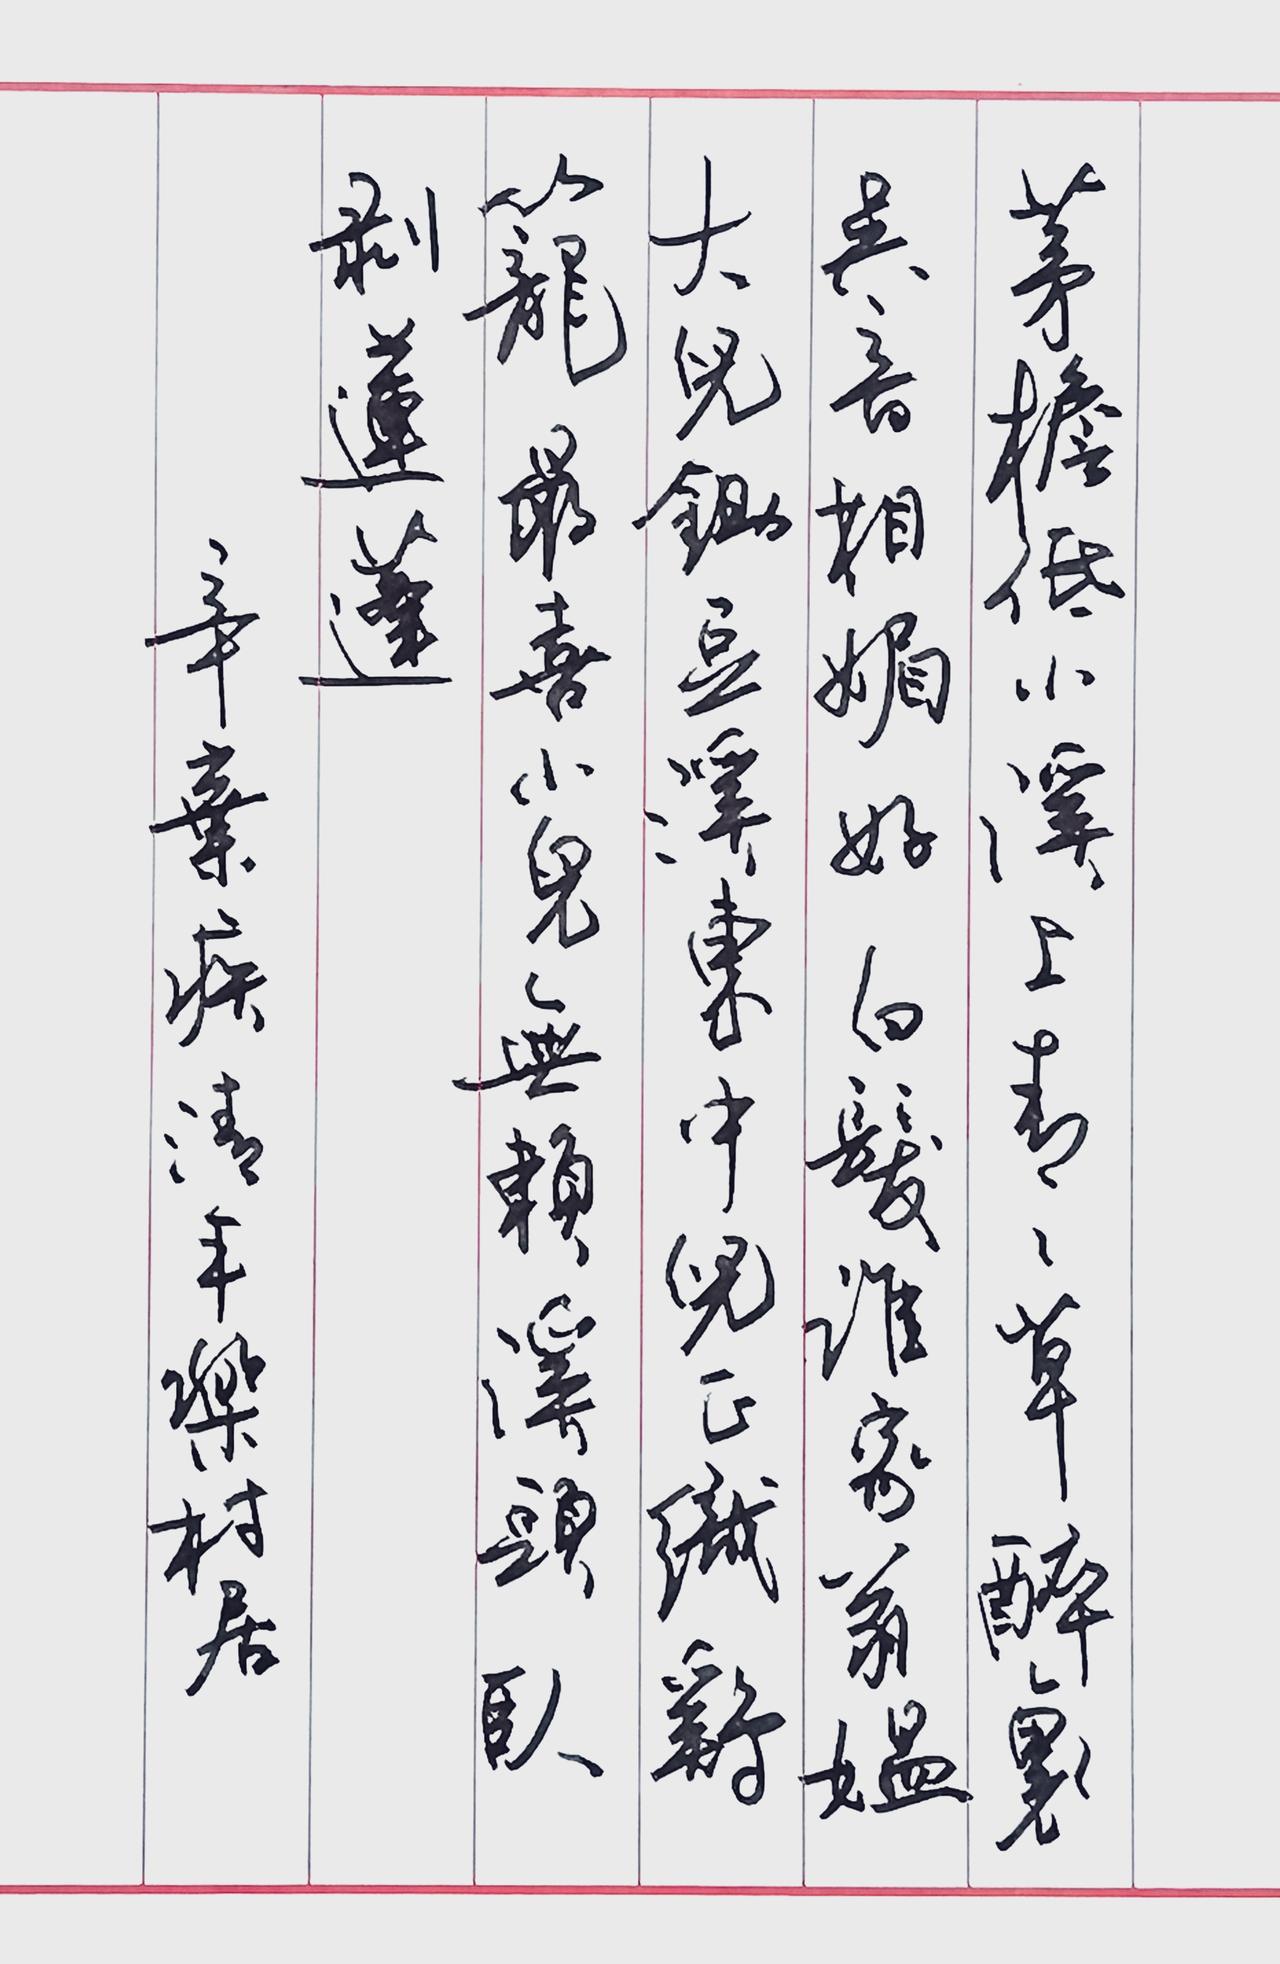 茅檐低小溪上青〻草醉裏
吳音相媚好白髮誰家翁媼
大兒鋤豆溪東中兒正織雞
籠最喜小兒無賴溪頭臥
剝蓮蓬
辛棄疾清平樂村居